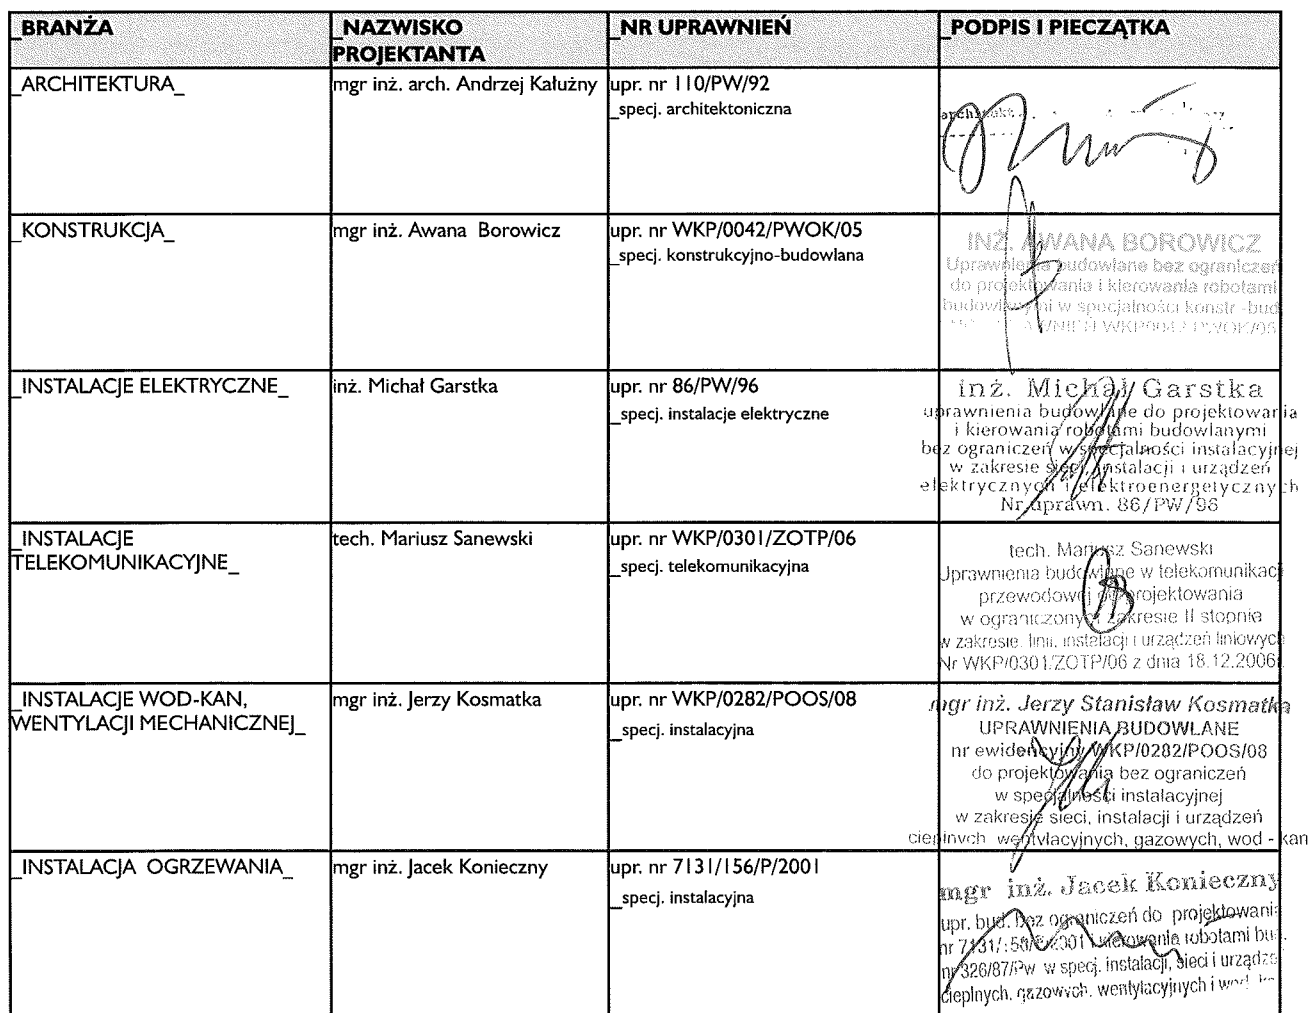 _BRANŻA
_NAZWISKO
PROJEKTANTA
_NR UPRAWNIEŃ
_PODPIS I PIECZĄTKA
_ARCHITEKTURA_
mgr inż. arch. Andrzej Kałużny
upr. nr 110/PW/92
_specj. architektoniczna
architekt
_KONSTRUKCJA_
mgr inż. Awana Borowicz
upr. nr WKP/0042/PWOK/05
_specj. konstrukcyjno-budowlana
INŻ. AWANA BOROWICZ
Uprawnienia budowlane bez ograniczeń
do projektowania i kierowania robotami
budowlanymi w specjalności konstr -bud
WKP/0042/PWOK/05
_INSTALACJE ELEKTRYCZNE_
inż. Michał Garstka
upr. nr 86/PW/96
_specj. instalacje elektryczne
inż. Michał Garstka
uprawnienia budowlane do projektowania
i kierowania robotami budowlanymi
bez ograniczeń w specjalności instalacyjnej
w zakresie sieci, instalacji i urządzeń
elektrycznych i elektroenergetycznych
Nr uprawn. 86/PW/96
_INSTALACJE
TELEKOMUNIKACYJNE_
tech. Mariusz Sanewski
upr. nr WKP/0301/ZOTP/06
_specj. telekomunikacyjna
tech. Mariusz Sanewski
Uprawnienia budowlane w telekomunikacj
przewodowej do projektowania
w ograniczonym zakresie II stopnia
w zakresie linii, instalacji i urządzeń liniowych
Nr WKP/0301/ZOTP/06 z dnia 18.12.2006
_INSTALACJE WOD-KAN,
WENTYLACJI MECHANICZNEJ_
mgr inż. Jerzy Kosmatka
upr. nr WKP/0282/POOS/08
_specj. instalacyjna
mgr inż. Jerzy Stanisław Kosmatka
UPRAWNIENIA BUDOWLANE
nr ewidencyjny WKP/0282/POOS/08
do projektowania bez ograniczeń
w specjalności instalacyjnej
w zakresie sieci, instalacji i urządzeń
cieplnych wentylacyjnych, gazowych, wod - kan
_INSTALACJA OGRZEWANIA_
mgr inż. Jacek Konieczny
upr. nr 7131/156/P/2001
_specj. instalacyjna
mgr inż. Jacek Konieczny
upr. bud. bez ograniczeń do projektowania
nr 7131/156/P/2001 i kierowania robotami bud.
nr 326/87/Pw w specj. instalacji, sieci i urządze
cieplnych, gazowych, wentylacyjnych i